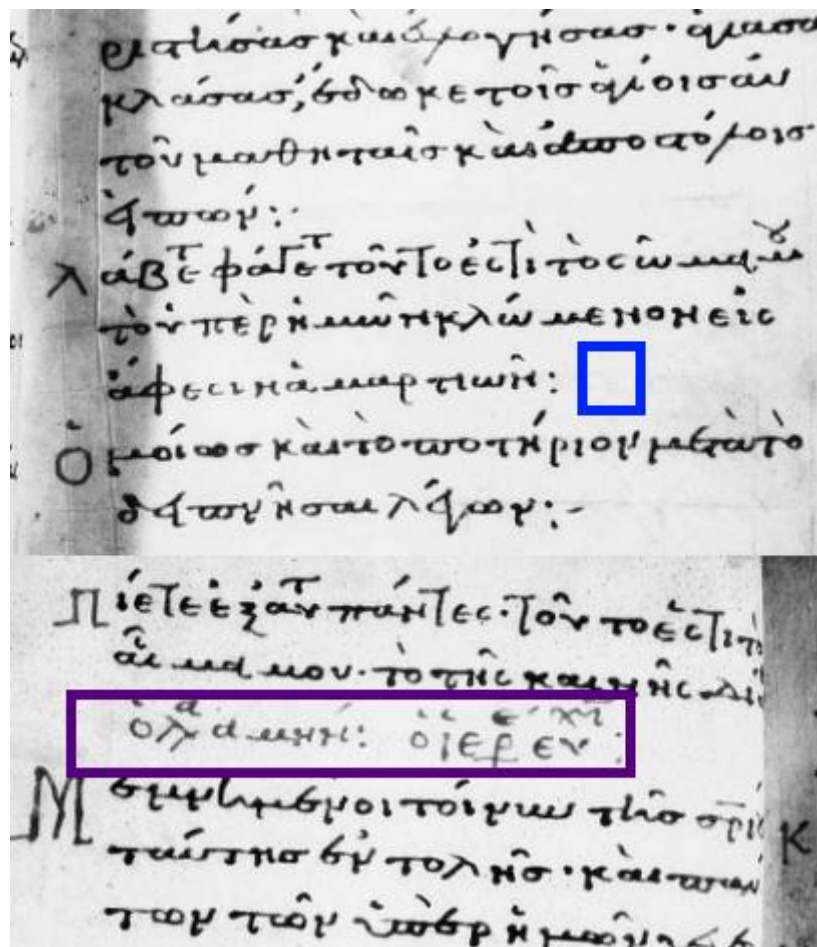 ματίσας καὶ εὐλογήσας· ἁγιάσα
κλάσας, ἔδωκε τοῖς ἁγίοις αὐ
τοῦ μαθηταῖς καὶ ἀποστόλοις
εἰπών:
λάβετε φάγετε τοῦτο ἐστὶ τὸ σῶμα μου
τὸ ὑπὲρ ἡμῶν κλώμενον εἰς
ἄφεσιν ἁμαρτιῶν:
Ὁμοίως καὶ τὸ ποτήριον μετὰ τὸ
δειπνῆσαι λέγων:
Πίετε ἐξ αὐτ πάντες· τοῦτο ἐστὶ τὸ
αἷμα μου· τὸ τῆς καινῆς δι
ὁ λα ἀμήν: ὁ ἱερ ε εν χ:
Μεμνημένοι τοίνυν τῆς σρι
ταύτης ἐντολῆς· καὶ πάν
των τῶν ὑπὲρ ἡμῶν γε
Κ